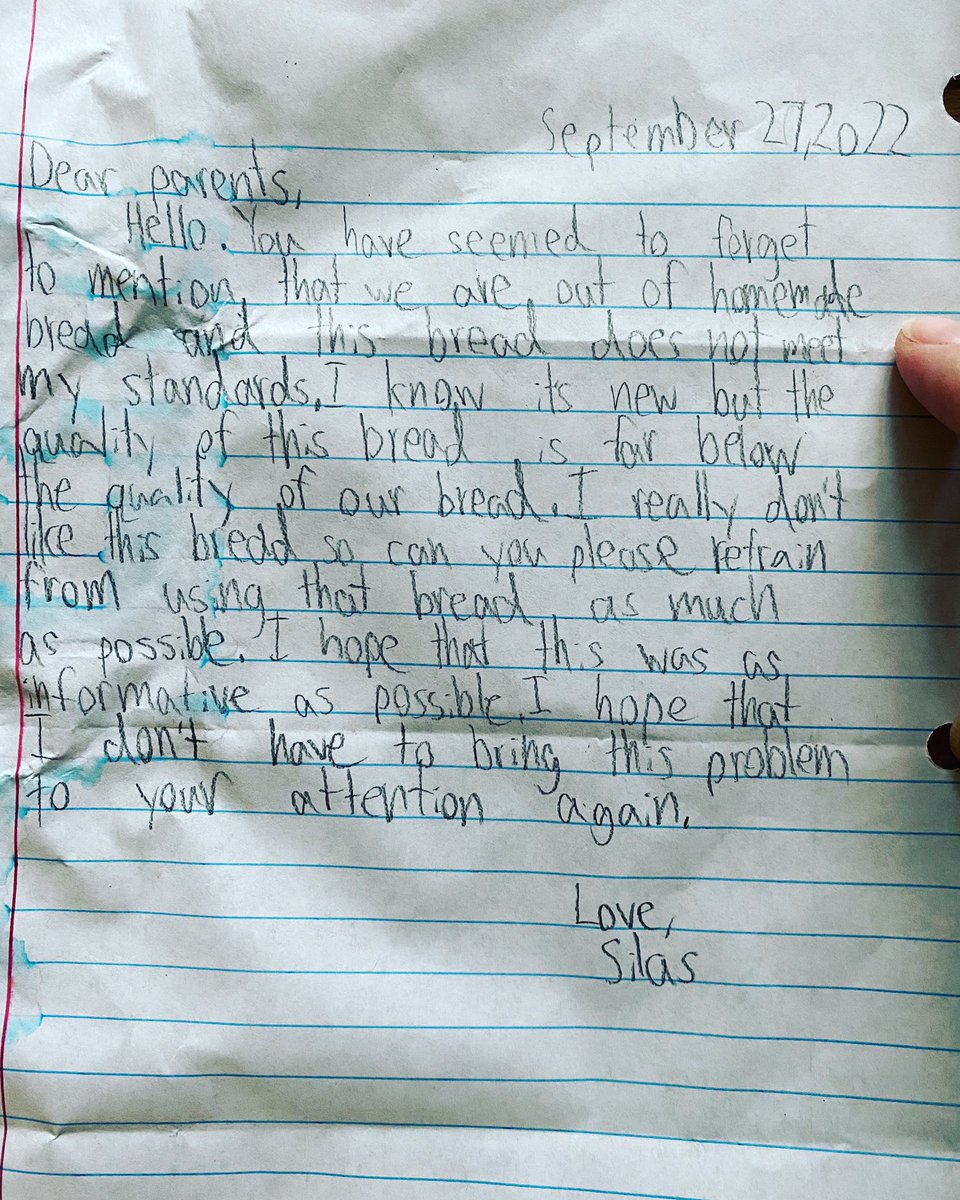 September 27, 2022
Dear parents,
Hello. You have seemed to forget
to mention, that we are, out of homemade
bread and this bread does not meet
my standards. I know its new but the
quality of this bread is far below
the quality of our bread. I really don't
like this bread so can you please refrain
from using that bread as much
as possible. I hope that this was as
informative as possible. I hope that
I don't have to bring this problem
to your attention again.
Love,
Silas